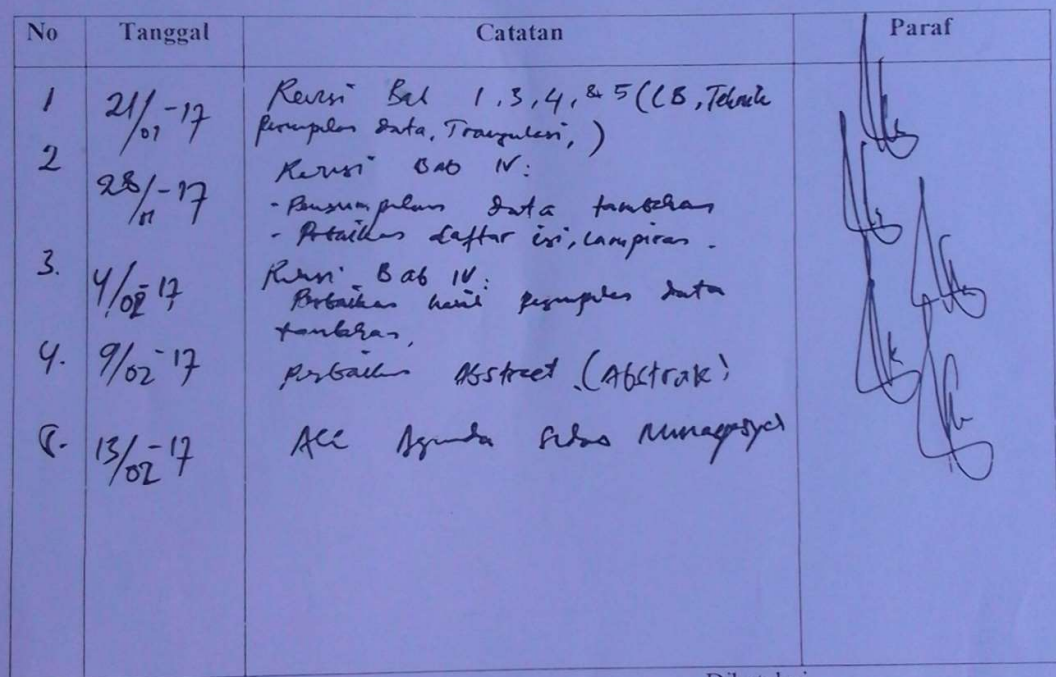 No Tanggal Catatan Paraf
1 21/01-17 Revisi Bab 1, 3, 4, & 5 (LB, Teknik
data, Triangulasi,)
2 28/01-17 Revisi Bab IV:
- Pengumpulan data tambahan
- Perbaikan daftar isi, lampiran.
3. 4/02-17 Revisi Bab IV:
Perbaikan hasil pengumpulan data
tambahan,
4. 9/02-17 perbaikan Abstract (Abstrak)
5. 13/02-17 ACC Agenda Sidang Munaqasyah